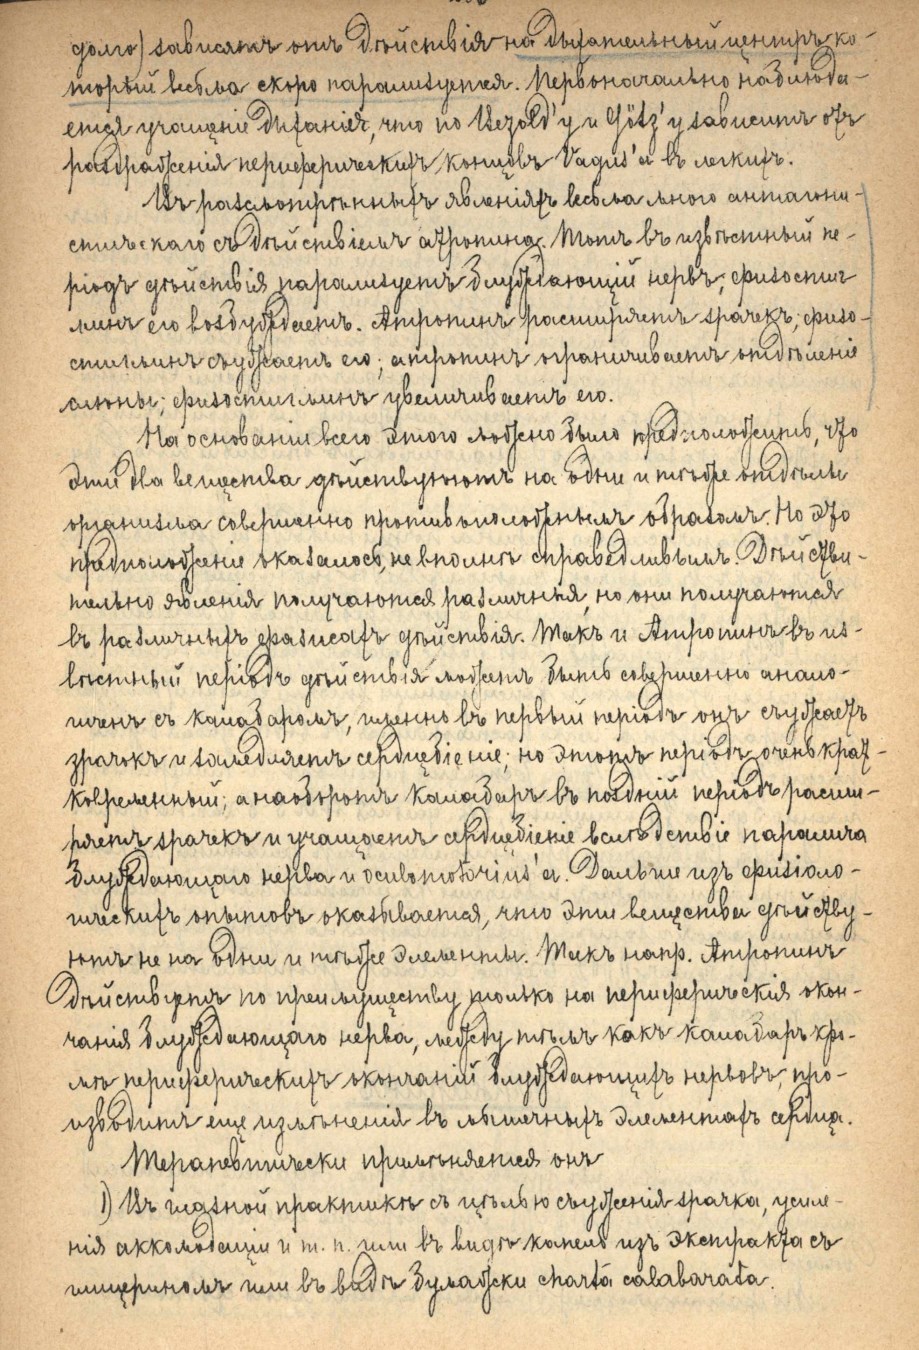 долго) зависятъ отъ дѣйствія на дыхательный центръ ко-
торый весьма скоро парализуется. Первоначально наблюда-
ется учащеніе дыханія, что по Bezold'у и Götz'у зависитъ отъ
раздраженія периферическихъ концовъ Vagus'а въ легкихъ.
Въ разсмотрѣнныхъ явленіяхъ весьма много антагони-
стическаго съ дѣйствіемъ атропина. Тотъ въ извѣстный пе-
ріодъ дѣйствія парализуетъ блуждающій нервъ; физостиг-
минъ его возбуждаетъ. Атропинъ расширяетъ зрачекъ; физо-
стигминъ съуживаетъ его; атропинъ ограничиваетъ отдѣленіе
слюны; физостигминъ увеличиваетъ его.
На основаніи всего этого можно было предположить, что
эти два вещества дѣйствуюютъ на одни и тѣ же отдѣлы
организма совершенно противоположнымъ образомъ. Но это
предположеніе оказалось, не вполнѣ справедливымъ. Дѣйстви-
тельно явленія получаются различныя, но они получаются
въ различныхъ фазисахъ дѣйствія. Такъ и Атропинъ въ из-
вѣстный періодъ дѣйствія можетъ быть совершенно анало-
гиченъ съ калабаромъ, именно въ первый періодъ онъ съужаетъ
зрачокъ и замедляетъ сердцебіеніе; но этотъ періодъ очень крат-
ковременный; а наоборотъ калабаръ въ поздній періодъ расши-
ряетъ зрачекъ и учащаетъ сердцебіеніе вслѣдствіе паралича
блуждающаго нерва и oculomotorius'а. Дальше изъ физіоло-
гическихъ опытовъ оказывается, что эти вещества дѣйству-
ютъ не на одни и тѣже элементы. Такъ напр. Атропинъ
дѣйствуетъ по преимуществу только на периферическія окон-
чанія блуждающаго нерва, между тѣмъ какъ калабаръ кро-
мѣ периферическихъ окончаній блуждающихъ нервовъ, про-
изводитъ еще измѣненія въ мышечныхъ элементахъ сердца.
Терапевтически примѣняется онъ
1) Въ глазной практикѣ съ цѣлью съуженія зрачка, усиле-
нія аккомодаціи и т. п. или въ видѣ капель изъ экстракта съ
глицериномъ или въ видѣ бумажки charta calabarata.